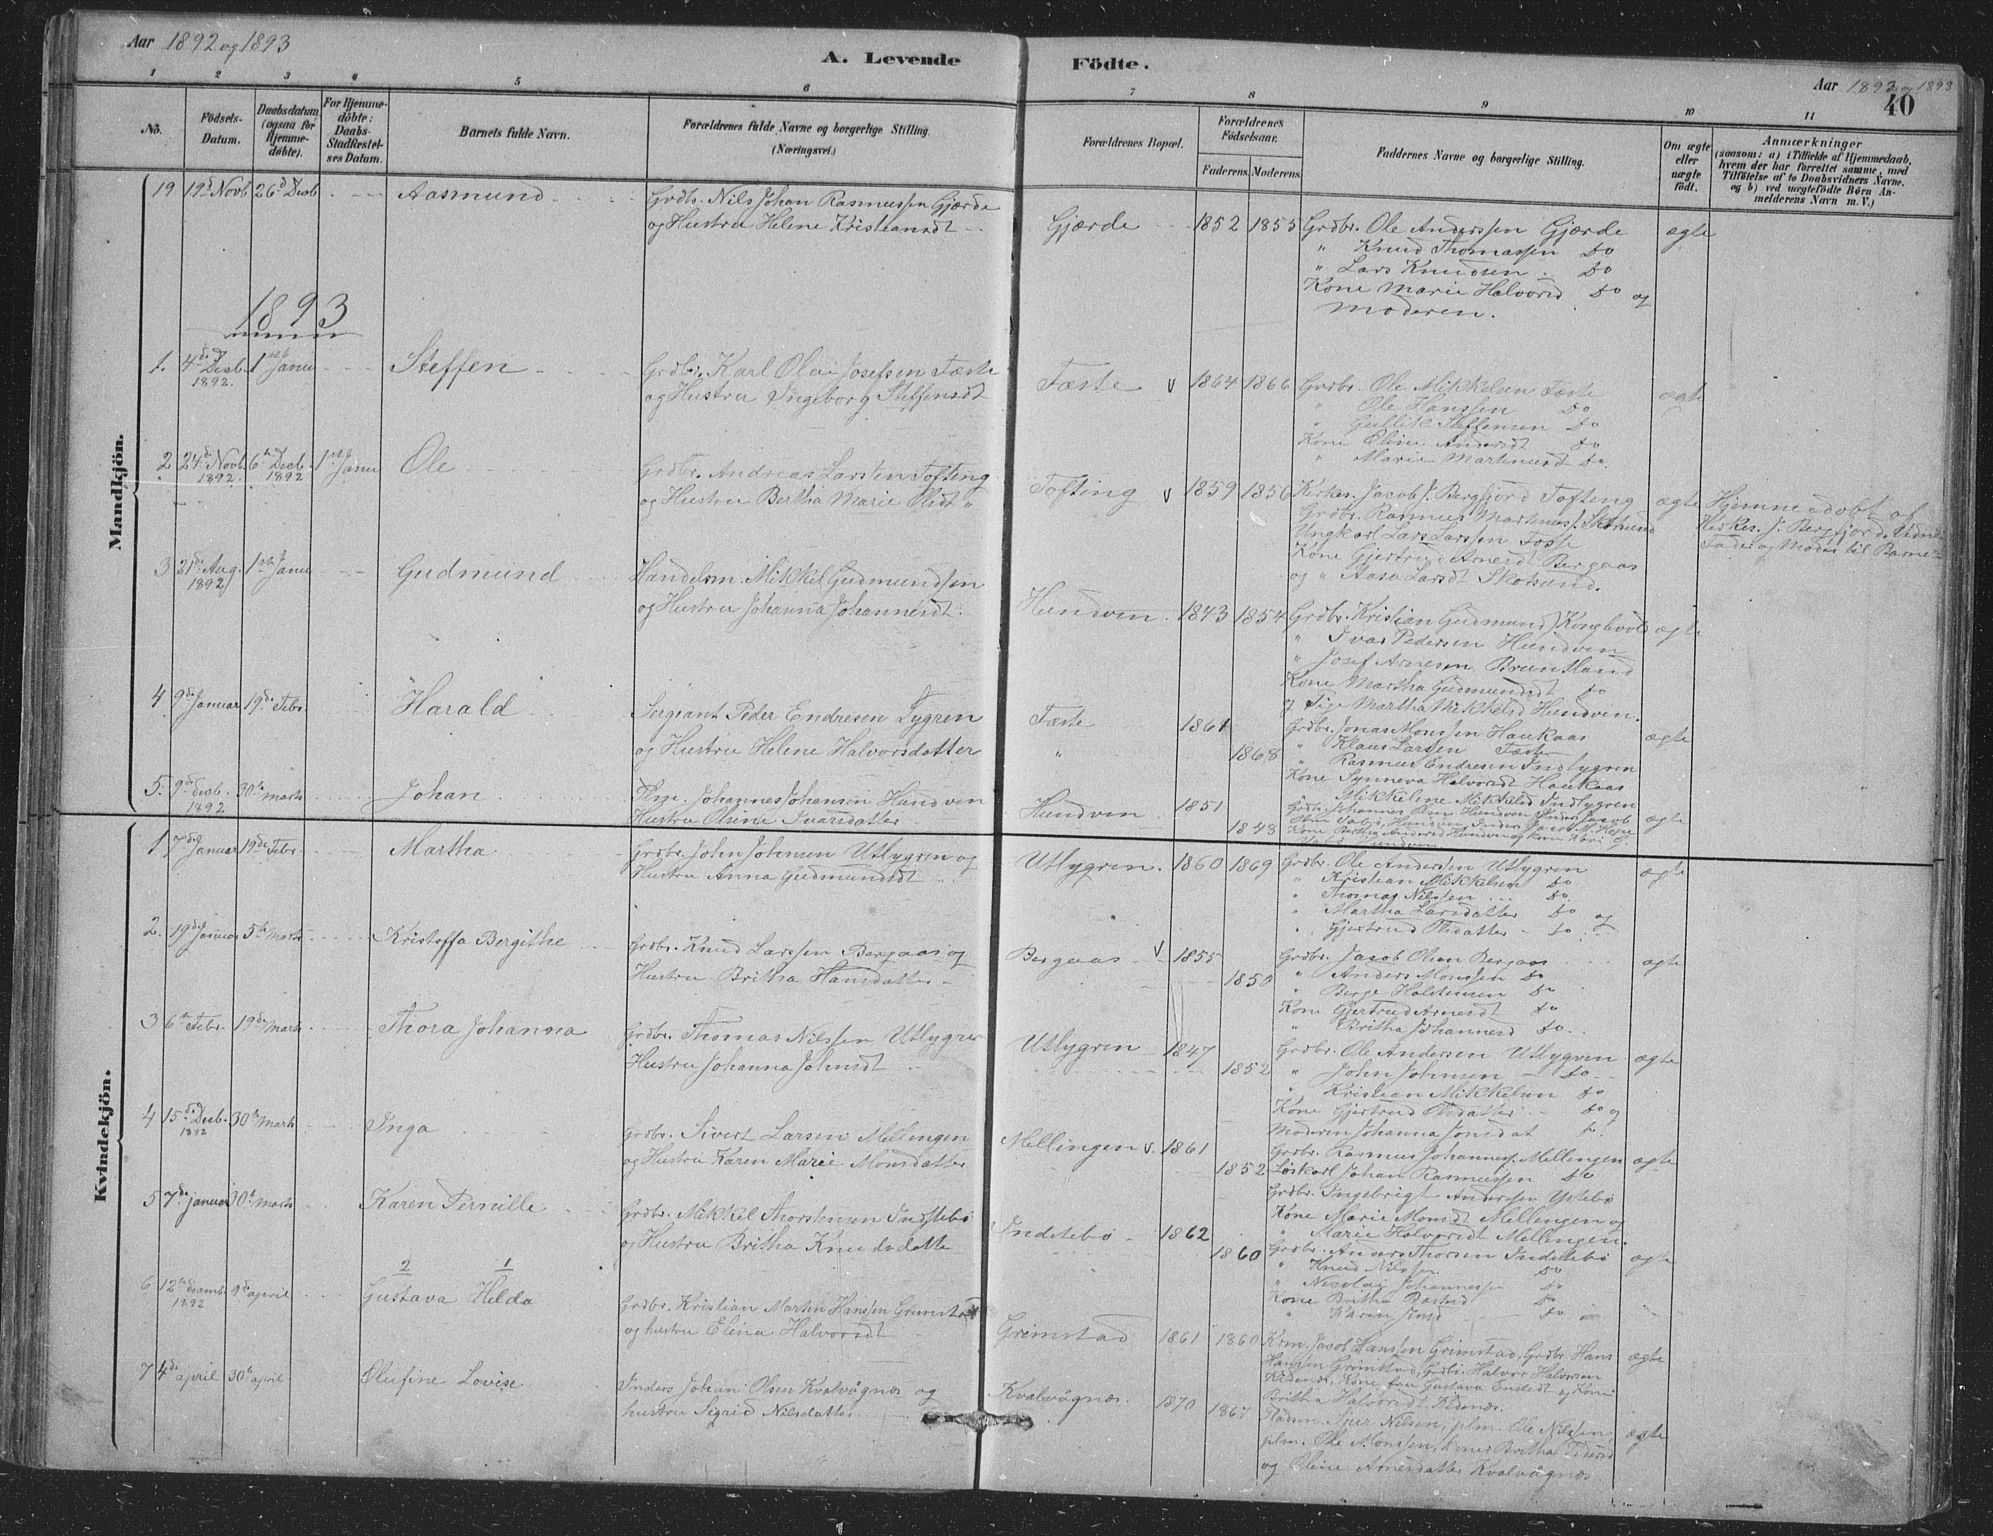 Aar 1892 og 1893
A. Levende Födte.
Aar 1892 og 1893
40
1 2 3 4 5 6 7 8 9 10 11
No.
Födsels-
Datum.
Daabsdatum
(ogsaa for
Hjemme-
döbte).
For Hjemme-
döbte:
Daabs-
Stadfæstel-
ses Datum.
Barnets fulde Navn.
Forældrenes fulde Navne og borgerlige Stilling.
(Næringsvei.)
Forældrenes Bopæl.
Forældrenes
Födselsaar.
Faderens. Moderens.
Faddernes Navne og borgerlige Stilling.
Om ægte
eller
uægte
födt.
Anmærkninger
(saasom: a) i Tilfælde af Hjemmedaab,
hvem der har forrettet samme, med
Tilföielse af to Daabsvidners Navne,
og b) ved uægtefödte Börn An-
melderens Navn m. V.)
Mandkjön.
19 19d Novb 26d Desb Aasmund
Grdbr. Nils Johan Rasmussen Gjærde
og Hustru Helene Kristiansdt
Gjærde 1852 1855
Grdbr. Ole Anderssen Gjærde
" Knud Thomassen do
" Lars Knudsen do
Kone Marie Halvorsd. do og
Moderen.
ægte
1893
1. 4de Desb. 1892. 1st Janu Steffen
Grdbr. Karl Olai Josefsen Fæste
og Hustru Ingeborg Steffensdt
Fæste v 1864 1866
Grdbr. Ole Mikkelsen Fæste
" Ole Hanssen do
" Gullik Steffensen do
Kone Oline Andersdt do
" Marie Martinusd do.
ægte
2 24de Novb. 1892. 6te Desb. 1892 1st Janu Ole
Grdbr. Andreas Larssen Tofting
og Hustru Bertha Marie Olsdt "
Tofting v 1859 1856
Kirkes. Jacob J. Bergfjord Tofting
Grdbr. Rasmus Martinus J. Skotsund
Ungkarl Lars Larssen Fosse
Kone Gjertrud Arnesdt Bergaas
og " Aasa Larsdt Skotsund.
ægte
Hjemmedöbt af
Kirkes. J. Bergfjord. Vidne
Fader og Moder til Barnet
3 21de Aug. 1892) 1st Janu Gudmund
Handelsm. Mikkel Gudmundsen
og Hustru Johanna Johannesdt.
Hundven. 1843 1854
Grdbr. Kristian Gudmunds) Kongbvold
" Ivar Pedersen Hundven
" Josef Arnesen Bruntland
Kone Martha Gudmundsdt do
og Pige Martha Mikkelsd Hundven.
ægte
4 9de Januar 19de Febr. Harald
Sergeant Peder Endresen Lygren
og Hustru Helene Halvorsdatter
Fæste 1861
" 1868
Grdbr. Jonas Monssen Haukaas
" Klaus Larssen Fæste
" Rasmus Endresen Indlygren
Kone Synneva Halvorsdt Haukaas
" Mikkeline Mikkelsd Indlygren
ægte
5. 9de Desb. 1892 30te Marts Johan
Plm. Johannes Johansen Hundven
Hustru Olsine Ivarsdatter
Hundven 1851
1843
ægte
Kvindekjön.
1 7de Januar 19de Febr. Martha
Grdbr. John Johnsen Utlygren og
Hustru Anna Gudmundsdt
Utlygren. 1860 1869
Grdbr. Ole Anderssen Utlygren
" Kristian Mikkelsen do
" Thomas Nilssen do.
" Martha Larsdatter do
" Gjertrud Olsdatter do og
ægte
2. 19de Januar 5te Marts Kristoffa Bergithe
Grdbr. Knud Larssen Bergaas og
Hustru Britha Hansdatter
Bergaas v 1855
1850
Grdbr. Jacob Olsen Bergaas
" Anders Monssen do
" Berge Holstensen do
Kone Gjertrud Arnesdt do
" Britha Johannesd do.
ægte
3 6te Febr. 19de Marts Thora Johanna
Grdbr. Thomas Nilssen Utlygre
Hustru Johanna Johnsdt
Utlygren 1847
1852
Grdbr. Ole Andersen Utlygren
" John Johnsen do
" Kristian Mikkelsen do
Kone Gjertrud Olsdatter do og
Moderen Johanna Jonsdat do.
ægte
4 15de Desb. 1892 30te Marts Inga
Grdbr. Sivert Larsen Mellingen
og Hustru Karen Marie Monsdatter
Mellingen v. 1861
1852
Grdbr. Rasmus Johannesf. Mellengen
Löskarl Johan Rasmussen do
Grdbr. Ingebrigt Anderssen Ystebö
Kone Marie Monsdt Mellengen og
" Marie Halvorsdt Mellengen.
ægte
5 7de januar 30te Marts Karen Pernille
Grdbr. Mikkel Thorstensen Indstebö
og Hustru Britha Knudsdatte
Indstebö 1862
1860
Grdbr. Anders Thorsen Indstebö
" Knud Nilssen do
" Nicolai Johannessen do
Kone Britha do
" Karin Jonsd do
ægte
2 1
6 12te decemb. 1892 9de april Gustava Helda
Grdbr. Kristian Martin Hanssen Grimstad
og hustru Elina Halvorsdt
Grimstad 1861 1860
Krm. Jacob Hanssen Grimstad, Grdbr. Hans
Hansen Grimstad, Grdbr. Halvor Halvorsen
Kidenes, Kone fru Gustava Ensdt og Kone
Britha Halvorsdt Kidenæs.
ægte
7 4de april 30te april Olufine Lovise
Inders Johan Olsen Kvalvågnæs og
hustru Sigrid Nilsdatter
Kvalvågnæs. 1870 1867
Sjur Nilsen, plm. Ole Nilsen,
plm. Ole Monssen, kone Britha
og Oline Arnesdatter Kvalvågnæs.
ægte